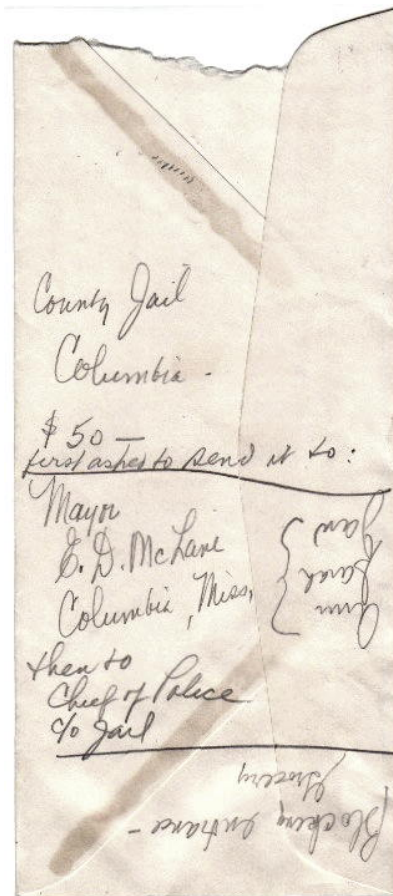 County Jail
Columbia -
$50 —
first asked to send it to:
Mayor
E. D. McLane
Columbia, Miss,
then to
Chief of Police
c/o Jail
Ann
Sarah
Jan
Blocking entrance -
grocery